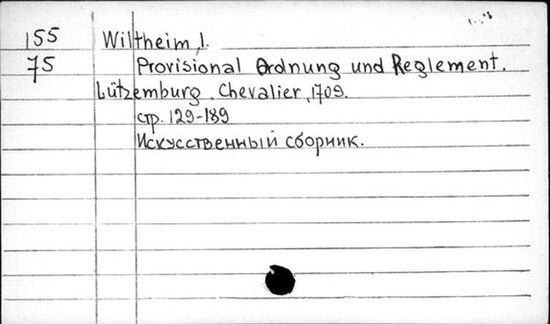 155 Wiltheim, I.
75 Provisional Ordnung und Reglement.
Lützemburg. Chevalier, 1709.
стр. 129-189
Искусственный сборник.